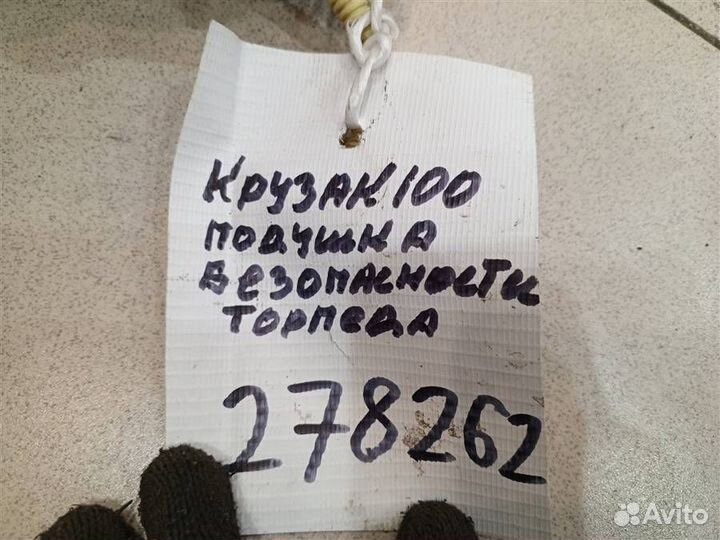 Крузак 100
подушка
безопасности
торпеда
278262
Avito